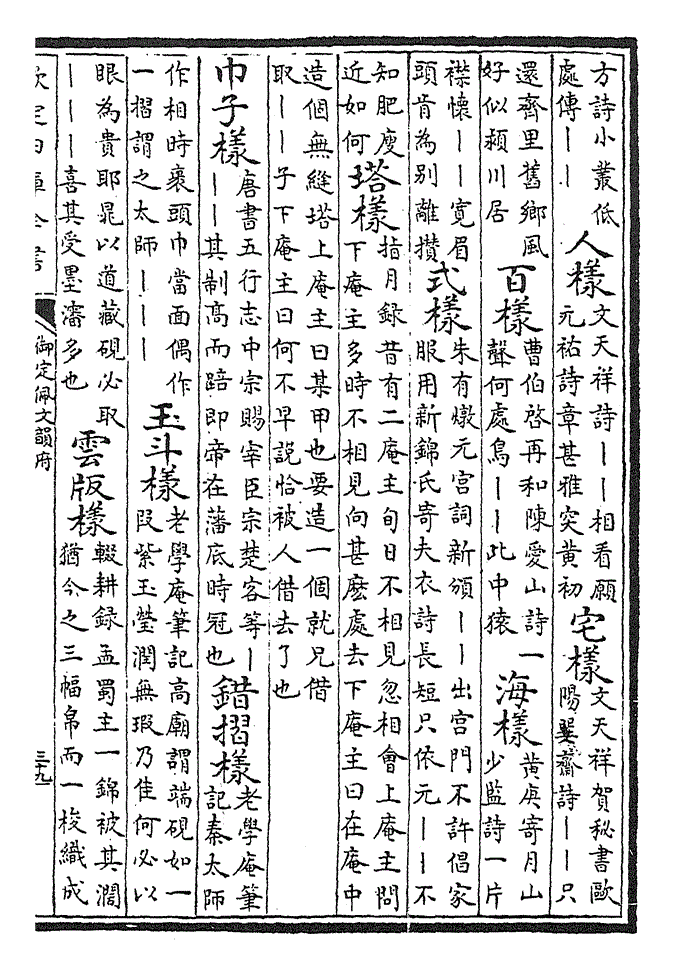 方詩小叢低
處傳｜｜
人樣
文天祥詩｜｜相看願
元祐詩章甚雅突黃初
宅樣
文天祥賀秘書歐
陽巽齋詩｜｜只
還齊里舊鄉風
好似潁川居
百樣
曹伯啓再和陳愛山詩一
聲何處鳥｜｜此中猿
海樣
黃庚寄月山
少監詩一片
襟懷｜｜寬眉
頭肯為別離攢
式樣
朱有燉元宮詞新頒｜｜出宮門不許倡家
服用新錦氏寄夫衣詩長短只依元｜｜不
知肥廋
近如何
塔樣
指月録昔有二庵主旬日不相見忽相會上庵主問
下庵主多時不相見向甚麽處去下庵主曰在庵中
造個無縫塔上庵主曰某甲也要造一個就兄借
取｜｜子下庵主曰何不早説恰被人借去了也
巾子樣
唐書五行志中宗賜宰臣宗楚客等｜
｜｜其制髙而踣即帝在藩底時冠也
錯摺樣
老學庵筆
記秦太師
作相時裹頭巾當面偶作
一摺謂之太師｜｜｜
玉斗樣
老學庵筆記高廟謂端硯如一
段紫玉瑩潤無瑕乃佳何必以
眼為貴耶晁以道藏硯必取
｜｜｜喜其受墨瀋多也
雲版樣
輟耕録孟蜀主一錦被其濶
猶今之三幅帛而一梭織成
欽定四庫全書
御定佩文韻府
三九